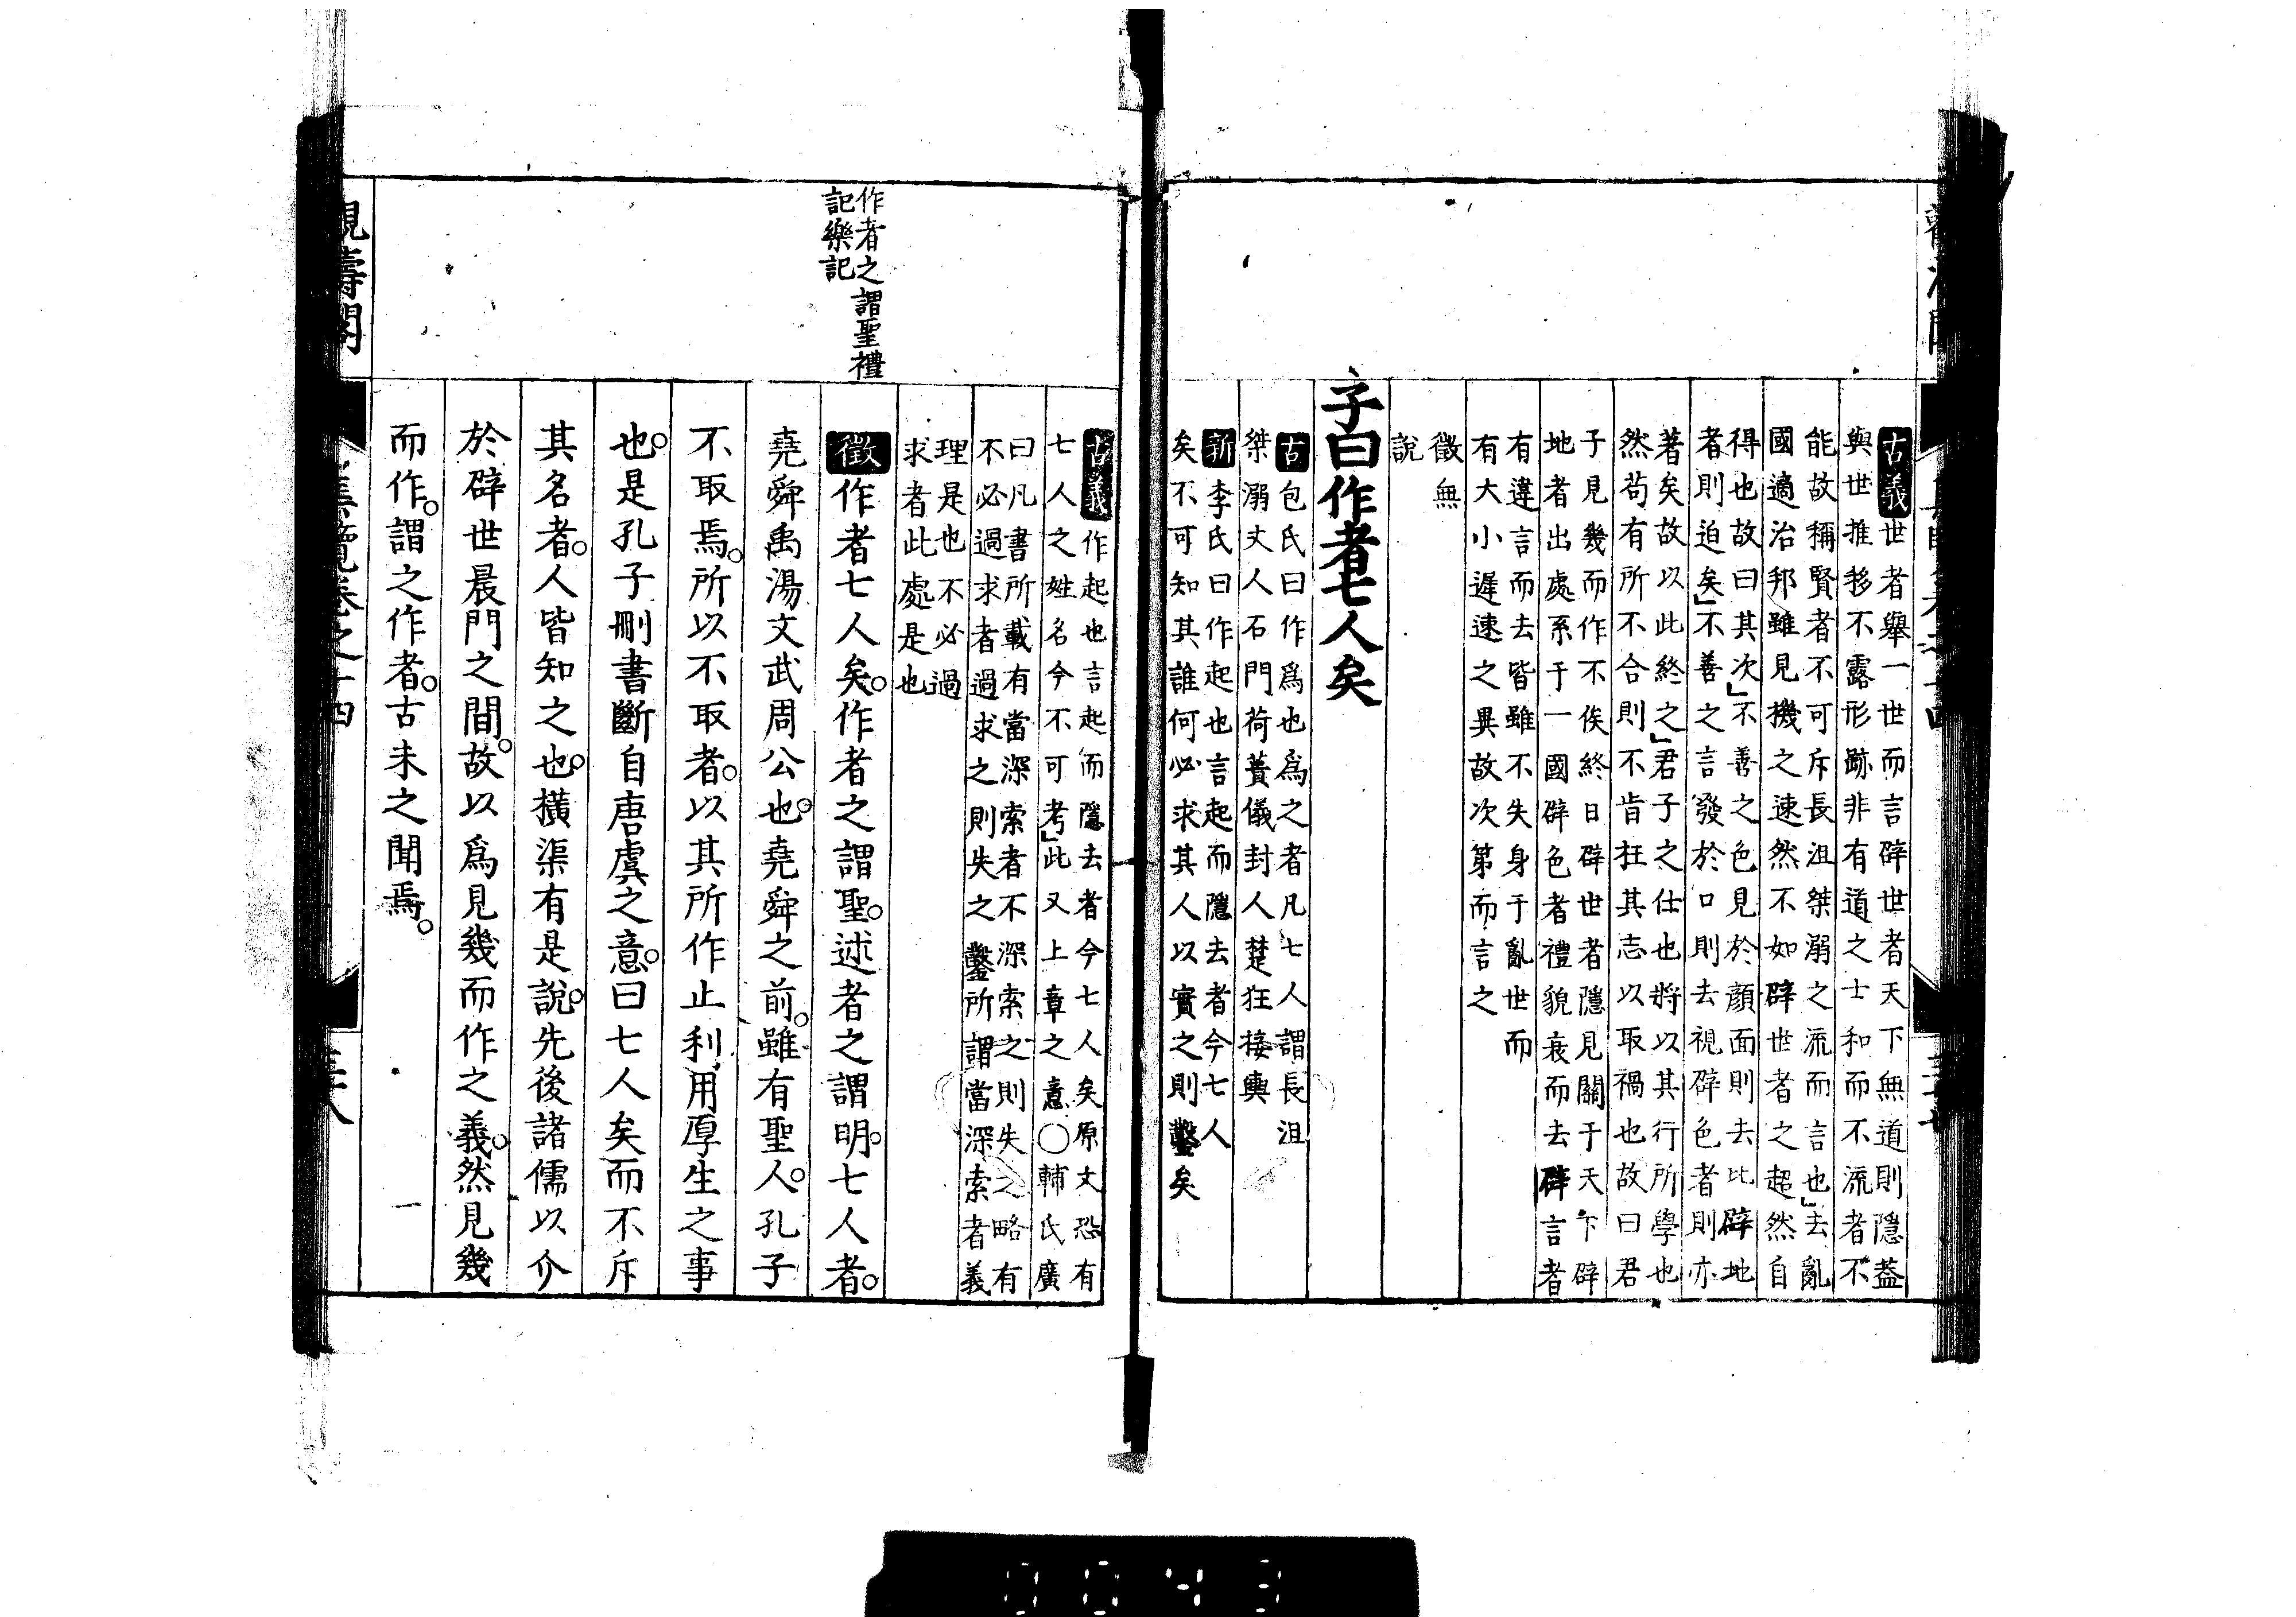 古義世者舉一世而言辟世者天下無道則隱蓋
與世推移不露形跡非有道之士和而不流者不
能故稱賢者不可斥長沮桀溺之流而言也」去亂
國適治邦雖見機之速然不如辟世者之超然自
得也故曰其次」不善之色見於顏面則去比辟地
者則迫矣」不善之言發於口則去視辟色者則亦
著矣故以此終之」君子之仕也將以其行所學也
然苟有所不合則不肯枉其志以取禍也故曰君
子見幾而作不俟終日辟世者隱見關于天下辟
地者出處系于一國辟色者禮貌衰而去辟言者
有違言而去皆雖不失身于亂世而
有大小遲速之異故次第而言之
徵無
說
子曰作者七人矣
古包氏曰作爲也爲之者凡七人謂長沮
桀溺丈人石門荷蕢儀封人楚狂接輿
新李氏曰作起也言起而隱去者今七人
矣不可知其誰何必求其人以實之則鑿矣
古義作起也言起而隱去者今七人矣原文恐有
七人之姓名今不可考」此又上章之意○輔氏廣
曰凡書所載有當深索者不深索之則失之略有
不必過求者過求之則失之鑿所謂當深索者義
理是也不必過
求者此處是也
作者之謂聖禮
記樂記
徵作者七人矣。作者之謂聖。述者之謂明。七人者。
堯舜禹湯文武周公也。堯舜之前。雖有聖人。孔子
不取焉。所以不取者。以其所作止利用厚生之事
也。是孔子刪書斷自唐虞之意。曰七人矣而不斥
其名者。人皆知之也。橫渠有是說。先後諸儒以介
於辟世晨門之間。故以爲見幾而作之義。然見幾
而作。謂之作者。古未之聞焉。
覽卷之十四